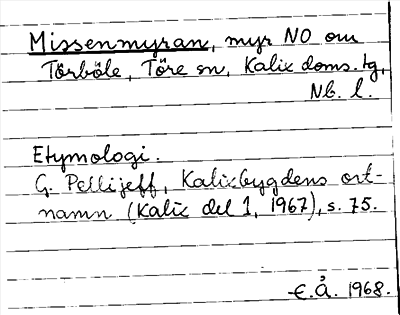 Missenmyran, myr NO om
Törböle, Töre sn, Kalix doms. tg,
Nb. l.
Etymologi.
G. Pellijeff, Kalixbygdens ort-
namn (Kalix del 1, 1967), s. 75.
E.Å. 1968.